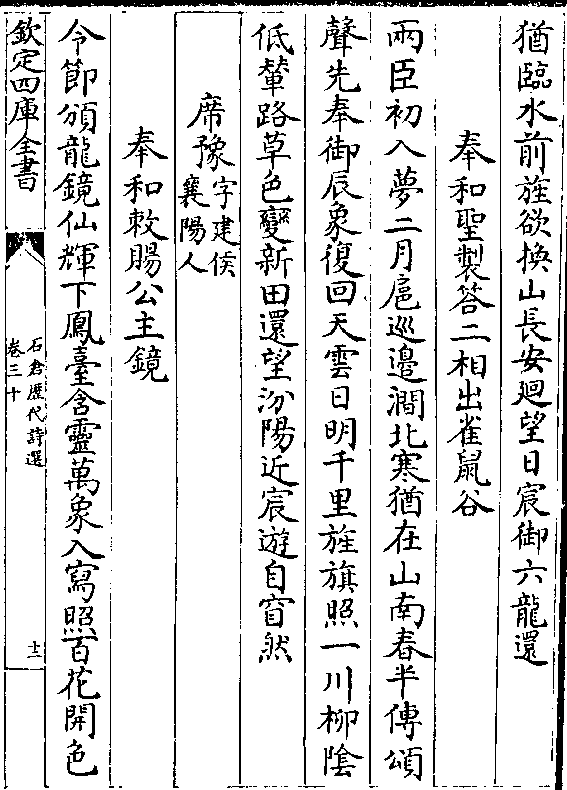 猶臨水前旌欲換山長安廻望日宸御六龍還
奉和聖製答二相出雀鼠谷
兩臣初入夢二月扈巡邊澗北寒猶在山南春半傳頌
聲先奉御辰象復回天雲日明千里旌旗照一川柳陰
低輦路草色變新田還望汾陽近宸遊自窅然
席豫字建侯
襄陽人
奉和敕賜公主鏡
令節頒龍鏡仙輝下鳳臺含靈萬象入寫照百花開色
欽定四庫全書
石倉歷代詩選
卷三十
十二